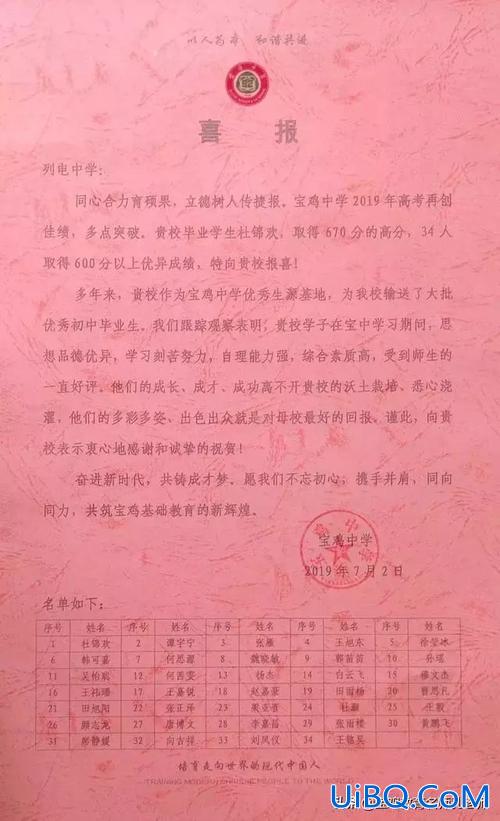 以人为本 和谐共进
喜 报
列电中学：
同心合力育硕果，立德树人传捷报。宝鸡中学2019年高考再创
佳绩，多点突破。贵校毕业学生杜锦欢，取得670分的高分，34人
取得600分以上优异成绩，特向贵校报喜！
多年来，贵校作为宝鸡中学优秀生源基地，为我校输送了大批
优秀初中毕业生。我们跟踪观察表明：贵校学子在宝中学习期间，思
想品德优异，学习刻苦努力，自理能力强，综合素质高，受到师生的
一直好评。他们的成长、成才、成功离不开贵校的沃土栽培、悉心浇
灌，他们的多彩多姿、出色出众就是对母校最好的回报。谨此，向贵
校表示衷心地感谢和诚挚的祝贺！
奋进新时代，共铸成才梦。愿我们不忘初心，携手并肩，同向
同力，共筑宝鸡基础教育的新辉煌。
宝鸡中学
2019年7月2日
名单如下：
序号 姓名 序号 姓名 序号 姓名 序号 姓名 序号 姓名
1 杜锦欢 2 谭宇宁 3 张雁 4 王旭东 5 徐莹冰
6 韩可嘉 7 何思源 8 魏晓敏 9 郭苗苗 10 孙瑶
11 吴怡斌 12 何茜雯 13 杨杰 14 白云飞 15 穆文杰
16 王祎璠 17 王嘉锐 18 赵嘉景 19 田雨杨 20 曹思凡
21 田旭阳 22 张正泽 23 24 杜颖 25 王毅
26 颜志龙 27 唐博文 28 李嘉昌 29 张雨楼 30 黄鹏飞
31 郭静媛 32 向吉祥 33 刘凤仪 34 王铭昊
培育走向世界的现代中国人
TRAINING MODERN CHINESE PEOPLE TO THE WORLD
UiBQ.CoM